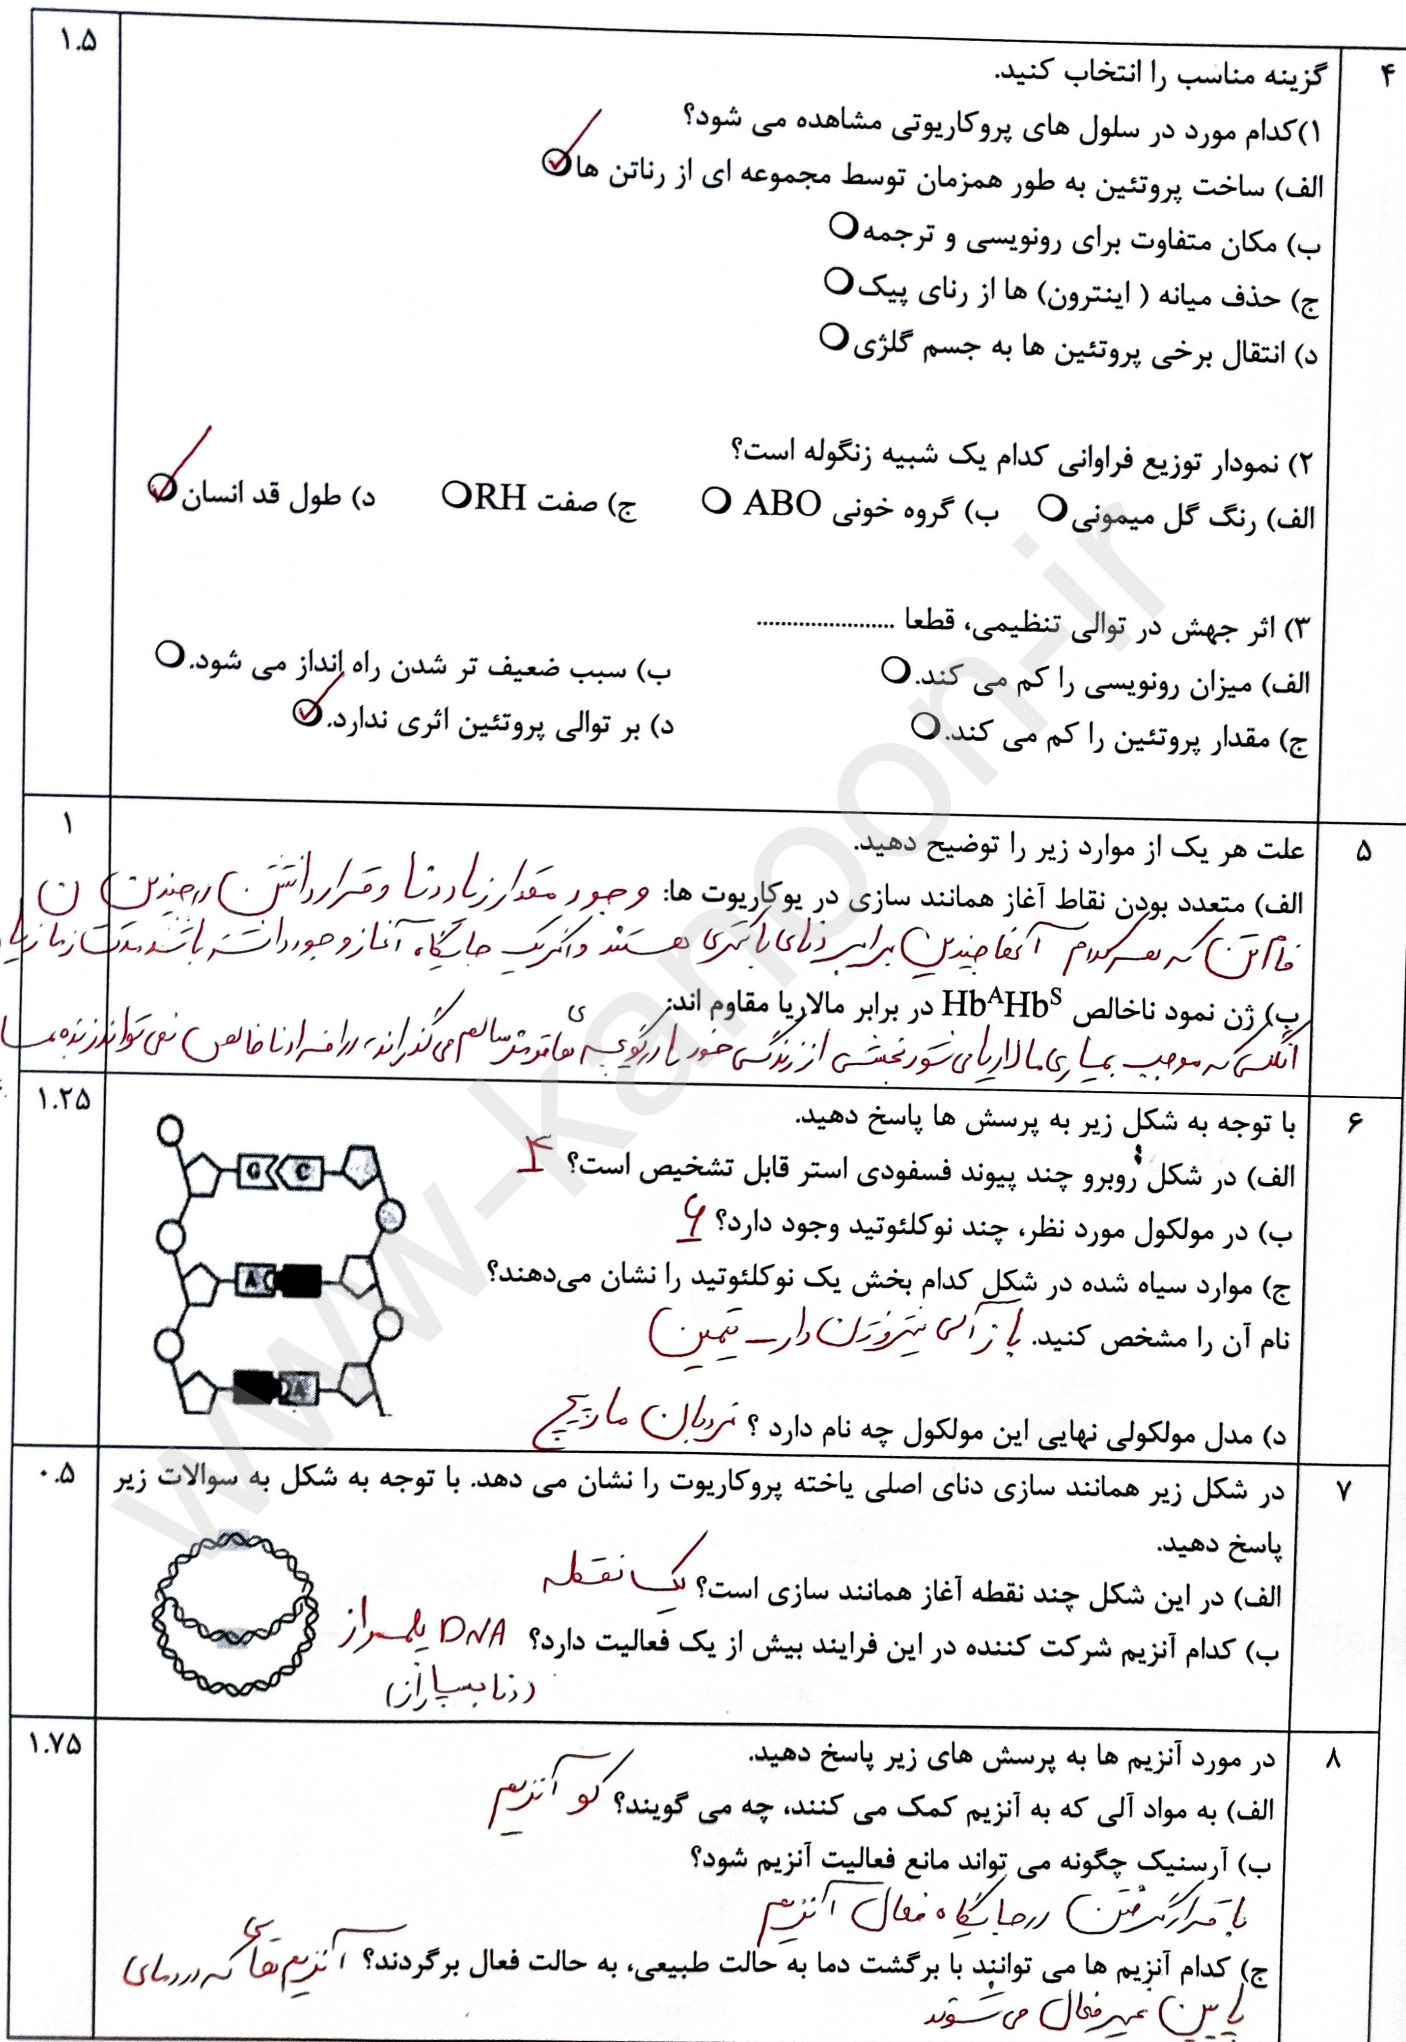 ۴
گزینه مناسب را انتخاب کنید.
۱.۵
۱)کدام مورد در سلول های پروکاریوتی مشاهده می شود؟
الف) ساخت پروتئین به طور همزمان توسط مجموعه ای از رناتن ها
ب) مکان متفاوت برای رونویسی و ترجمه
ج) حذف میانه ( اینترون) ها از رنای پیک
د) انتقال برخی پروتئین ها به جسم گلژی
۲) نمودار توزیع فراوانی کدام یک شبیه زنگوله است؟
الف) رنگ گل میمونی ب) گروه خونی ABO ج) صفت RH د) طول قد انسان
۳) اثر جهش در توالی تنظیمی، قطعا .......................
الف) میزان رونویسی را کم می کند. ب) سبب ضعیف تر شدن راه انداز می شود.
ج) مقدار پروتئین را کم می کند. د) بر توالی پروتئین اثری ندارد.
۵
علت هر یک از موارد زیر را توضیح دهید.
۱
الف) متعدد بودن نقاط آغاز همانند سازی در یوکاریوت ها: وجود مقدار زیاد دنا و قرار داشتن در چندین
فام تن که هر کدام آنها چندین برابر دنای باکتری هستند و اگر یک جایگاه آغاز وجود داشته باشد مدت زمان زیاد
ب) ژن نمود ناخالص HbᴬHbˢ در برابر مالاریا مقاوم اند:
انگلی که موجب بیماری مالاریا می شود بخشی از زندگی خود را در گویچه های قرمز سالم می گذراند، در افراد ناخالص نمی تواند زنده بماند
۶
با توجه به شکل زیر به پرسش ها پاسخ دهید.
۱.۲۵
الف) در شکل روبرو چند پیوند فسفودی استر قابل تشخیص است؟ ۴
ب) در مولکول مورد نظر، چند نوکلئوتید وجود دارد؟ ۶
ج) موارد سیاه شده در شکل کدام بخش یک نوکلئوتید را نشان می‌دهند؟
نام آن را مشخص کنید. باز آلی نیتروژن دار _ تیمین
د) مدل مولکولی نهایی این مولکول چه نام دارد ؟ نردبان مارپیچ
G C
A
A
۷
در شکل زیر همانند سازی دنای اصلی یاخته پروکاریوت را نشان می دهد. با توجه به شکل به سوالات زیر
۰.۵
پاسخ دهید.
الف) در این شکل چند نقطه آغاز همانند سازی است؟ یک نقطه
ب) کدام آنزیم شرکت کننده در این فرایند بیش از یک فعالیت دارد؟ DNA پلیمراز
(دنا بسپاراز)
۸
در مورد آنزیم ها به پرسش های زیر پاسخ دهید.
۱.۷۵
الف) به مواد آلی که به آنزیم کمک می کنند، چه می گویند؟ کو آنزیم
ب) آرسنیک چگونه می تواند مانع فعالیت آنزیم شود؟
با قرار گرفتن در جایگاه فعال آنزیم
ج) کدام آنزیم ها می توانند با برگشت دما به حالت طبیعی، به حالت فعال برگردند؟ آنزیم هایی که در دمای
پایین غیر فعال می شوند
www-kanoon-ir